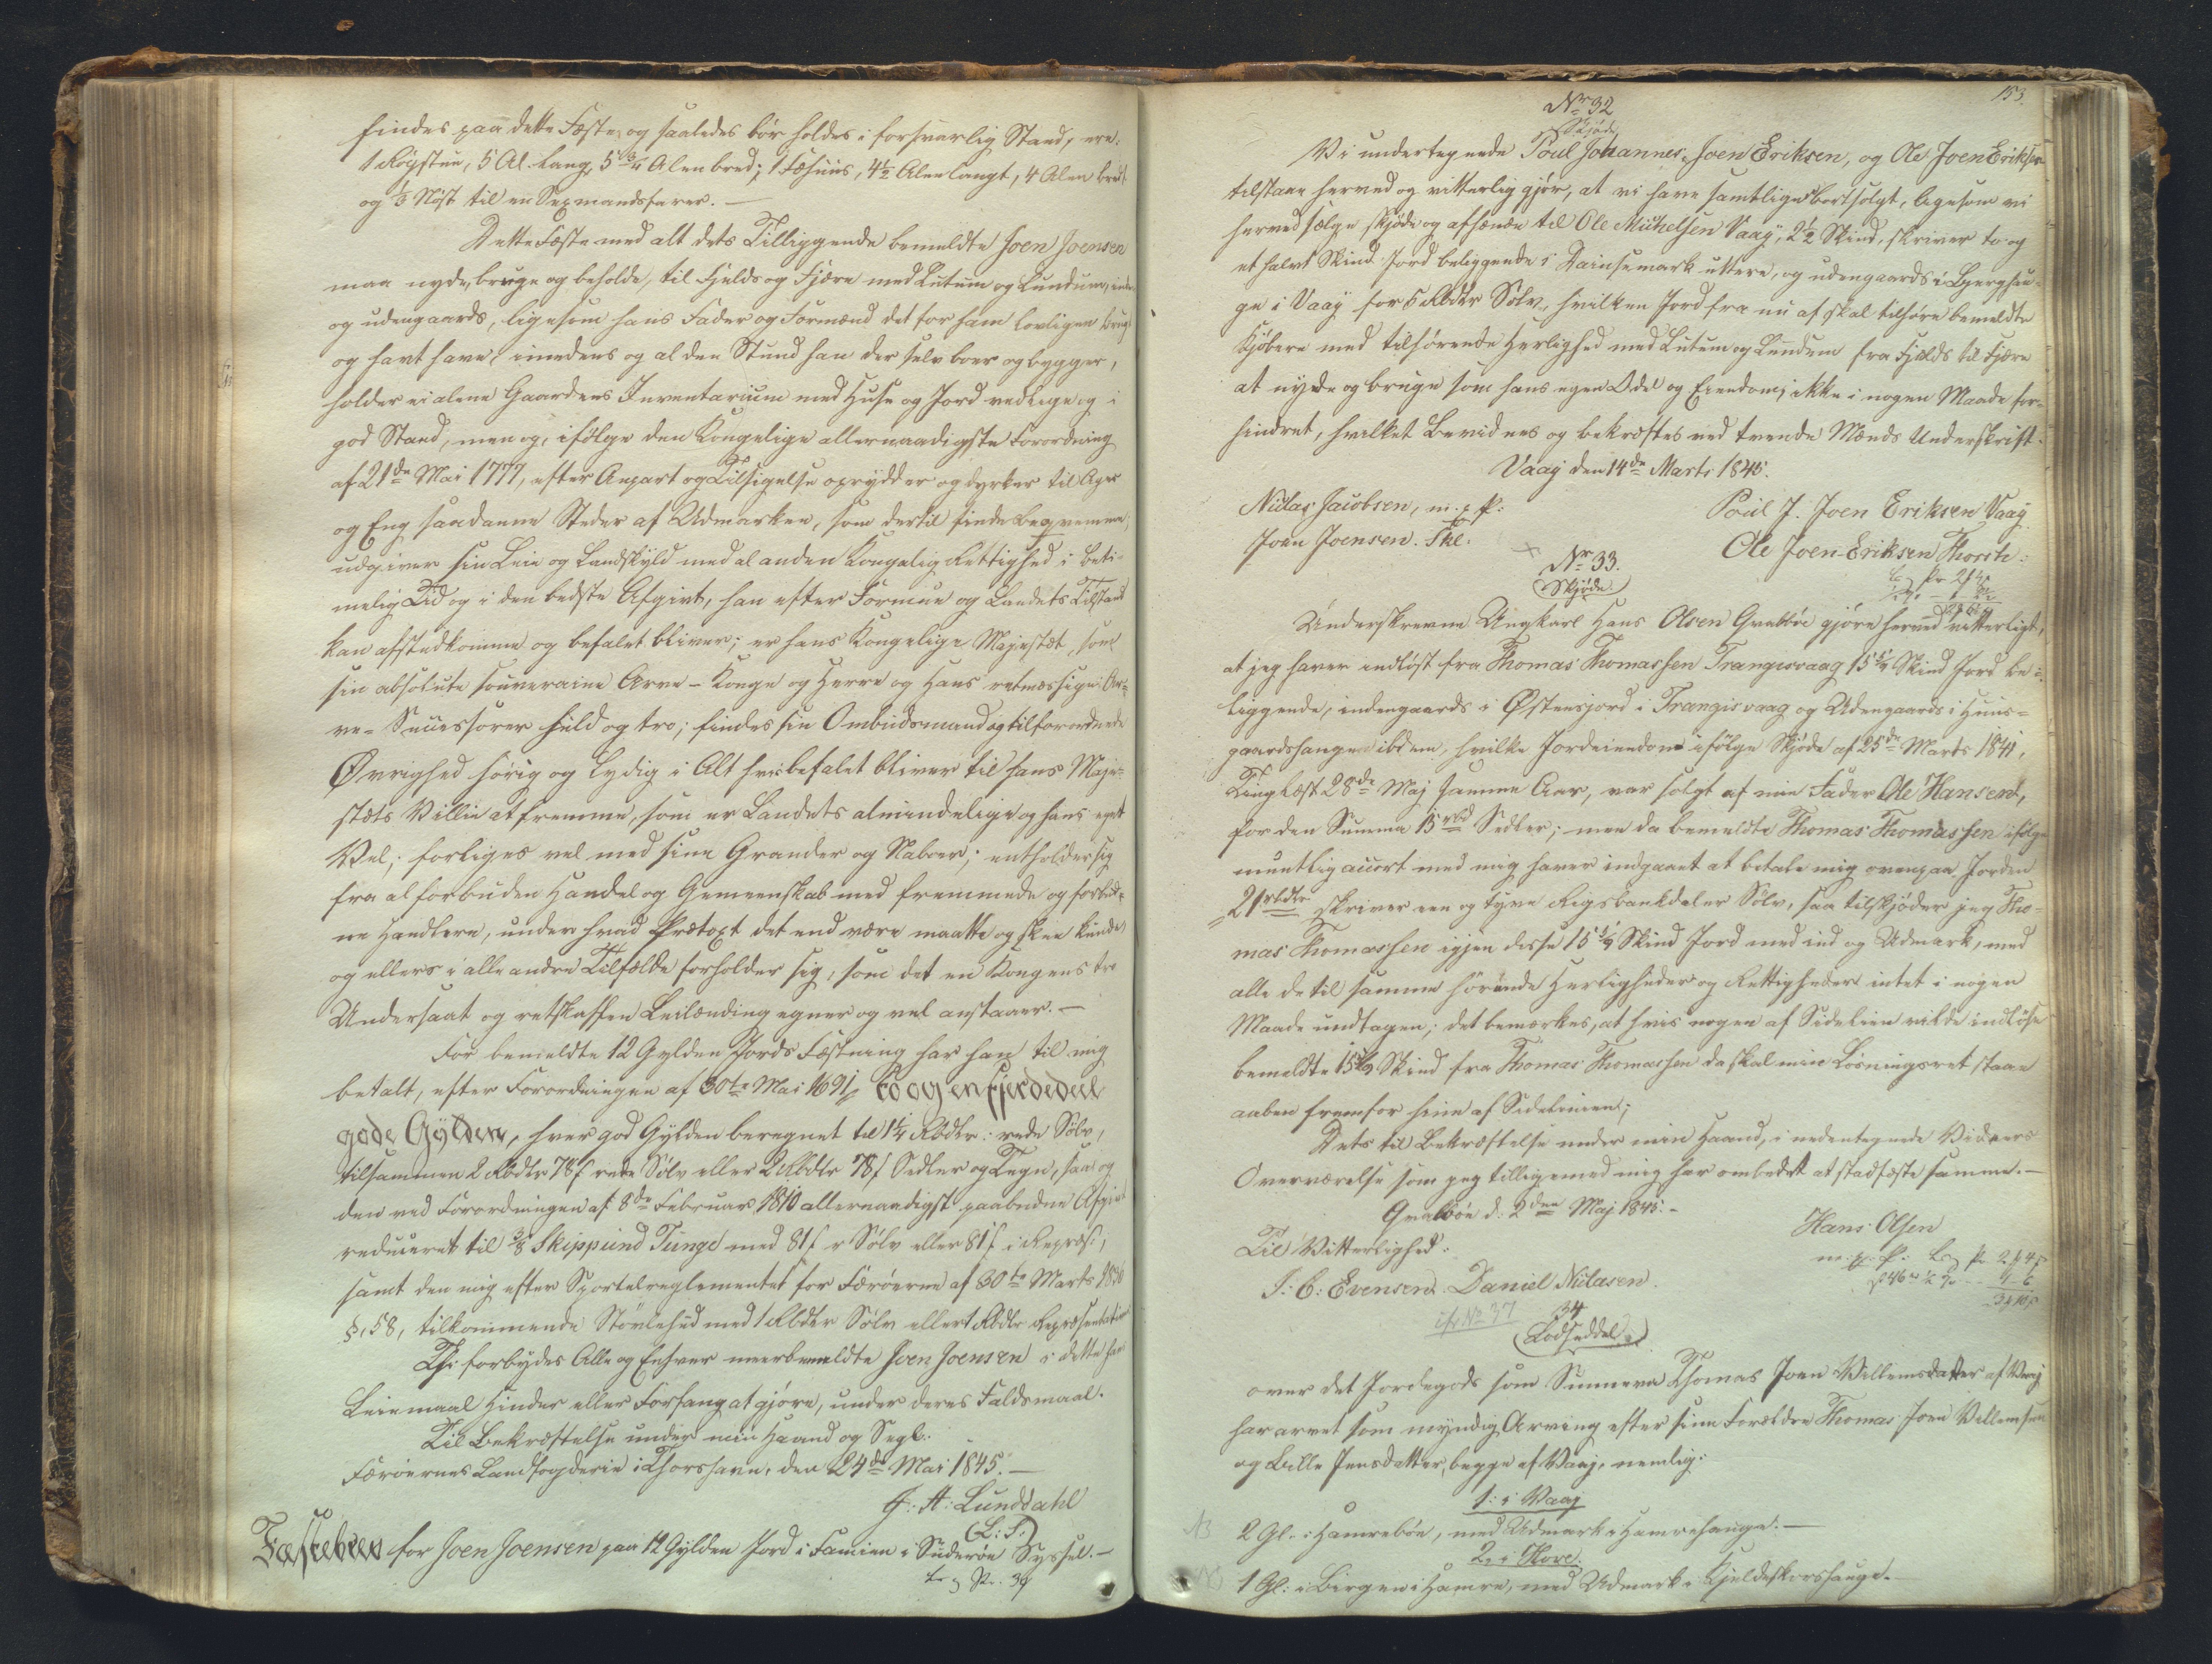 findes paa dette Fæste, og saaledes bør holdes i forsvarlig Stand, ere:
1 Røgstue, 5 Al. lang, 5 3/4 Alen bred; 1 Fæhuus, 4 1/2 Alen langt, 4 Alen bredt
og 1/3 Nøst til en Sexmandsfarer. —
Dette Fæste med alt dets Tilliggende bemeldte Joen Joensen
maa nyde, bruge og beholde, til Fjelds og Fjære med Lutum og Lundum, inden
og udengaards, ligesom hans Fader og Formænd det for ham lovligen brugt
og havt have, imedens og al den Stund han der selv boer og bygger,
holder ei alene Gaardens Inventarium med Huse og Jord vedlige og i
god Stand, men og, ifølge den Kongelige allernaadigste Forordning
af 21de Mai 1777, efter Anpart og Tilsigelse oprydder og dyrker til Ager
og Eng saadanne Steder af Udmarken, som dertil findes beqvemme;
udgiver sin Leie og Landskyld med al anden Kongelig Rettighed i beti-
melig Tid og i den bedste Afgivt, han efter Formue og Landets Tilstand
kan afstedkomme og befalet bliver; er hans Kongelige Majestæt, som
sin absolute souveraine Arve-Konge og Herre og Hans retmæssige Ar-
ve-Successorer huld og tro; findes sin Ombudsmand og tilforordnede
Øvrighed hørig og lydig i Alt hvis befalet bliver til hans Maje-
stæts Villie at fremme, som er Landets almindelige og hans eget
Vel; forliges vel med sine Grander og Naboer; entholder sig
fra al forbuden Handel og Gemeenskab med fremmede og forbud-
ne Handlere, under hvad Prætext det end være maatte og skee kunde
og ellers i alle andre Tilfælde forholder sig, som det en Kongens tro
Undersaat og retskaffen Leilænding egner og vel anstaaer. —
For bemeldte 12 Gylden Jords Fæstning har han til mig
betalt, efter Forordningen af 30te Mai 1691, to og en fjerdedeel
gode Gylden, hver god Gylden beregnet til 1 1/4 Rbdlr: rede Sølv,
tilsammen 2 Rbdlr 78 f rede Sølv eller 2 Rbdlr 78 f Sedler og Tegn, saa og
den ved Forordningen af 8de Februar 1810 allernaadigst paabudne Afgivt
reduceret til 3/8 Skippund Tunge med 81 f r Sølv eller 81 f i Repræs:,
samt den mig efter Sportelreglementet for Færøerne af 30te Marts 1836
§. 58, tilkommende Støvlehud med 1 Rbdlr Sølv eller 1 Rbdlr Repræsentativ
Thi forbydes Alle og Enhver meerbemeldte Joen Joensen i dette hans
Leiemaal Hinder eller Forfang at gjøre, under deres Faldsmaal.
Til Bekræftelse under min Haand og Segl.
Færøernes Landfogderie i Thorshavn, den 24de Mai 1845. —
J: A: Lunddahl
(L: S:)
Fæstebrev for Joen Joensen paa 12 Gylden Jord i Famien i Suderøe Syssel. —
153.
No 32
Skjøde
Vi undertegnede Poul Johannes, Joen Eriksen, og Ole Joen Eriksen
tilstaae herved og vitterlig gjør, at vi have samtlige bortsolgt, ligesom vi
herved sælge skjøde og afhænde til Ole Michelsen Vaag, 2 1/2 Skind, skriver to og
et halvt Skind Jord beliggende i Dainsemark uttere, og udengaards i Lyerghau-
ge i Vaag for 5 Rbdlr Sølv, hvilken Jord fra nu af skal tilhøre bemeldte
Kjøbere med tilhørende Herlighed med Lutum og Lundum fra Fjelds til Fjære
at nyde og bruge som hans egen Odel og Eiendom, ikke i nogen Maade for-
hindret, hvilket Bevidnes og bekræftes ved tvende Mænds Underskrift.
Vaag den 14de Marts 1845.
Niclas Jacobsen, m. p. P:
Poul J. Joen Eriksen Vaag
Joen Joensen. Skl.
Ole Joen Eriksen Thorsh:
No 33.
(Skjøde)
Underskrevne Ungkarl Hans Olsen Grabbøe gjøre herved vitterligt,
at jeg haver indløst fra Thomas Thomassen Trangisvaag 15 1/4 Skind Jord be-
liggende, indengaards i Østensjord i Trangisvaag og Udengaards i Huus-
gaardshangen ibdem, hvilke Jordeiendom ifølge Skjøde af 25de Marts 1841,
Tinglæst 28de Maj samme Aar, var solgt af min Fader Ole Hansen,
for den Summa 15 rbd Sedler; men da bemeldte Thomas Thomassen ifølge
muntlig accort med mig haver indgaaet at betale mig ovenpaa Jorden
21 rbdlr skriver een og tyve Rigsbankdaler Sølv, saa tilskjøder jeg Tho-
mas Thomassen igjen disse 15 1/4 Skind Jord med ind og Udmark, med
alle de til samme hørende Herligheder og Rettigheder intet i nogen
Maade undtagen; det bemærkes, at hvis nogen af Sidelinien vilde indløse
bemeldte 15 1/4 Skind fra Thomas Thomassen da skal min Løsningsret staae
aaben fremfor hine af Sidelinien;
Dets til Bekræftelse under min Haand, i nedentegnede Vidners
Overværelse som jeg tilligemed mig har ombedet at stadfæste samme. —
Grabbøe d. 2den Maj 1845. —
Til Vitterlighed:
Hans Olsen
m. p. P.
J: C: Evensen. Daniel Niclasen.
cfr No 37
34
(Lodseddel)
over det Jordegods som Sunneva Thomas Joen Villemsdatter af Vaag
har arvet som myndig Arving efter sine Forældre Thomas Joen Villemsen
og Bille Jensdatter, begge af Vaag, nemlig:
1: i Vaag
NB 2 Gl. i Hamrebøe, med Udmark i Hamrehauge. —
2, i Hove.
NB 1 Gl: i Birgene i Hamre, med Udmark i Kjeldeskorshauge. —